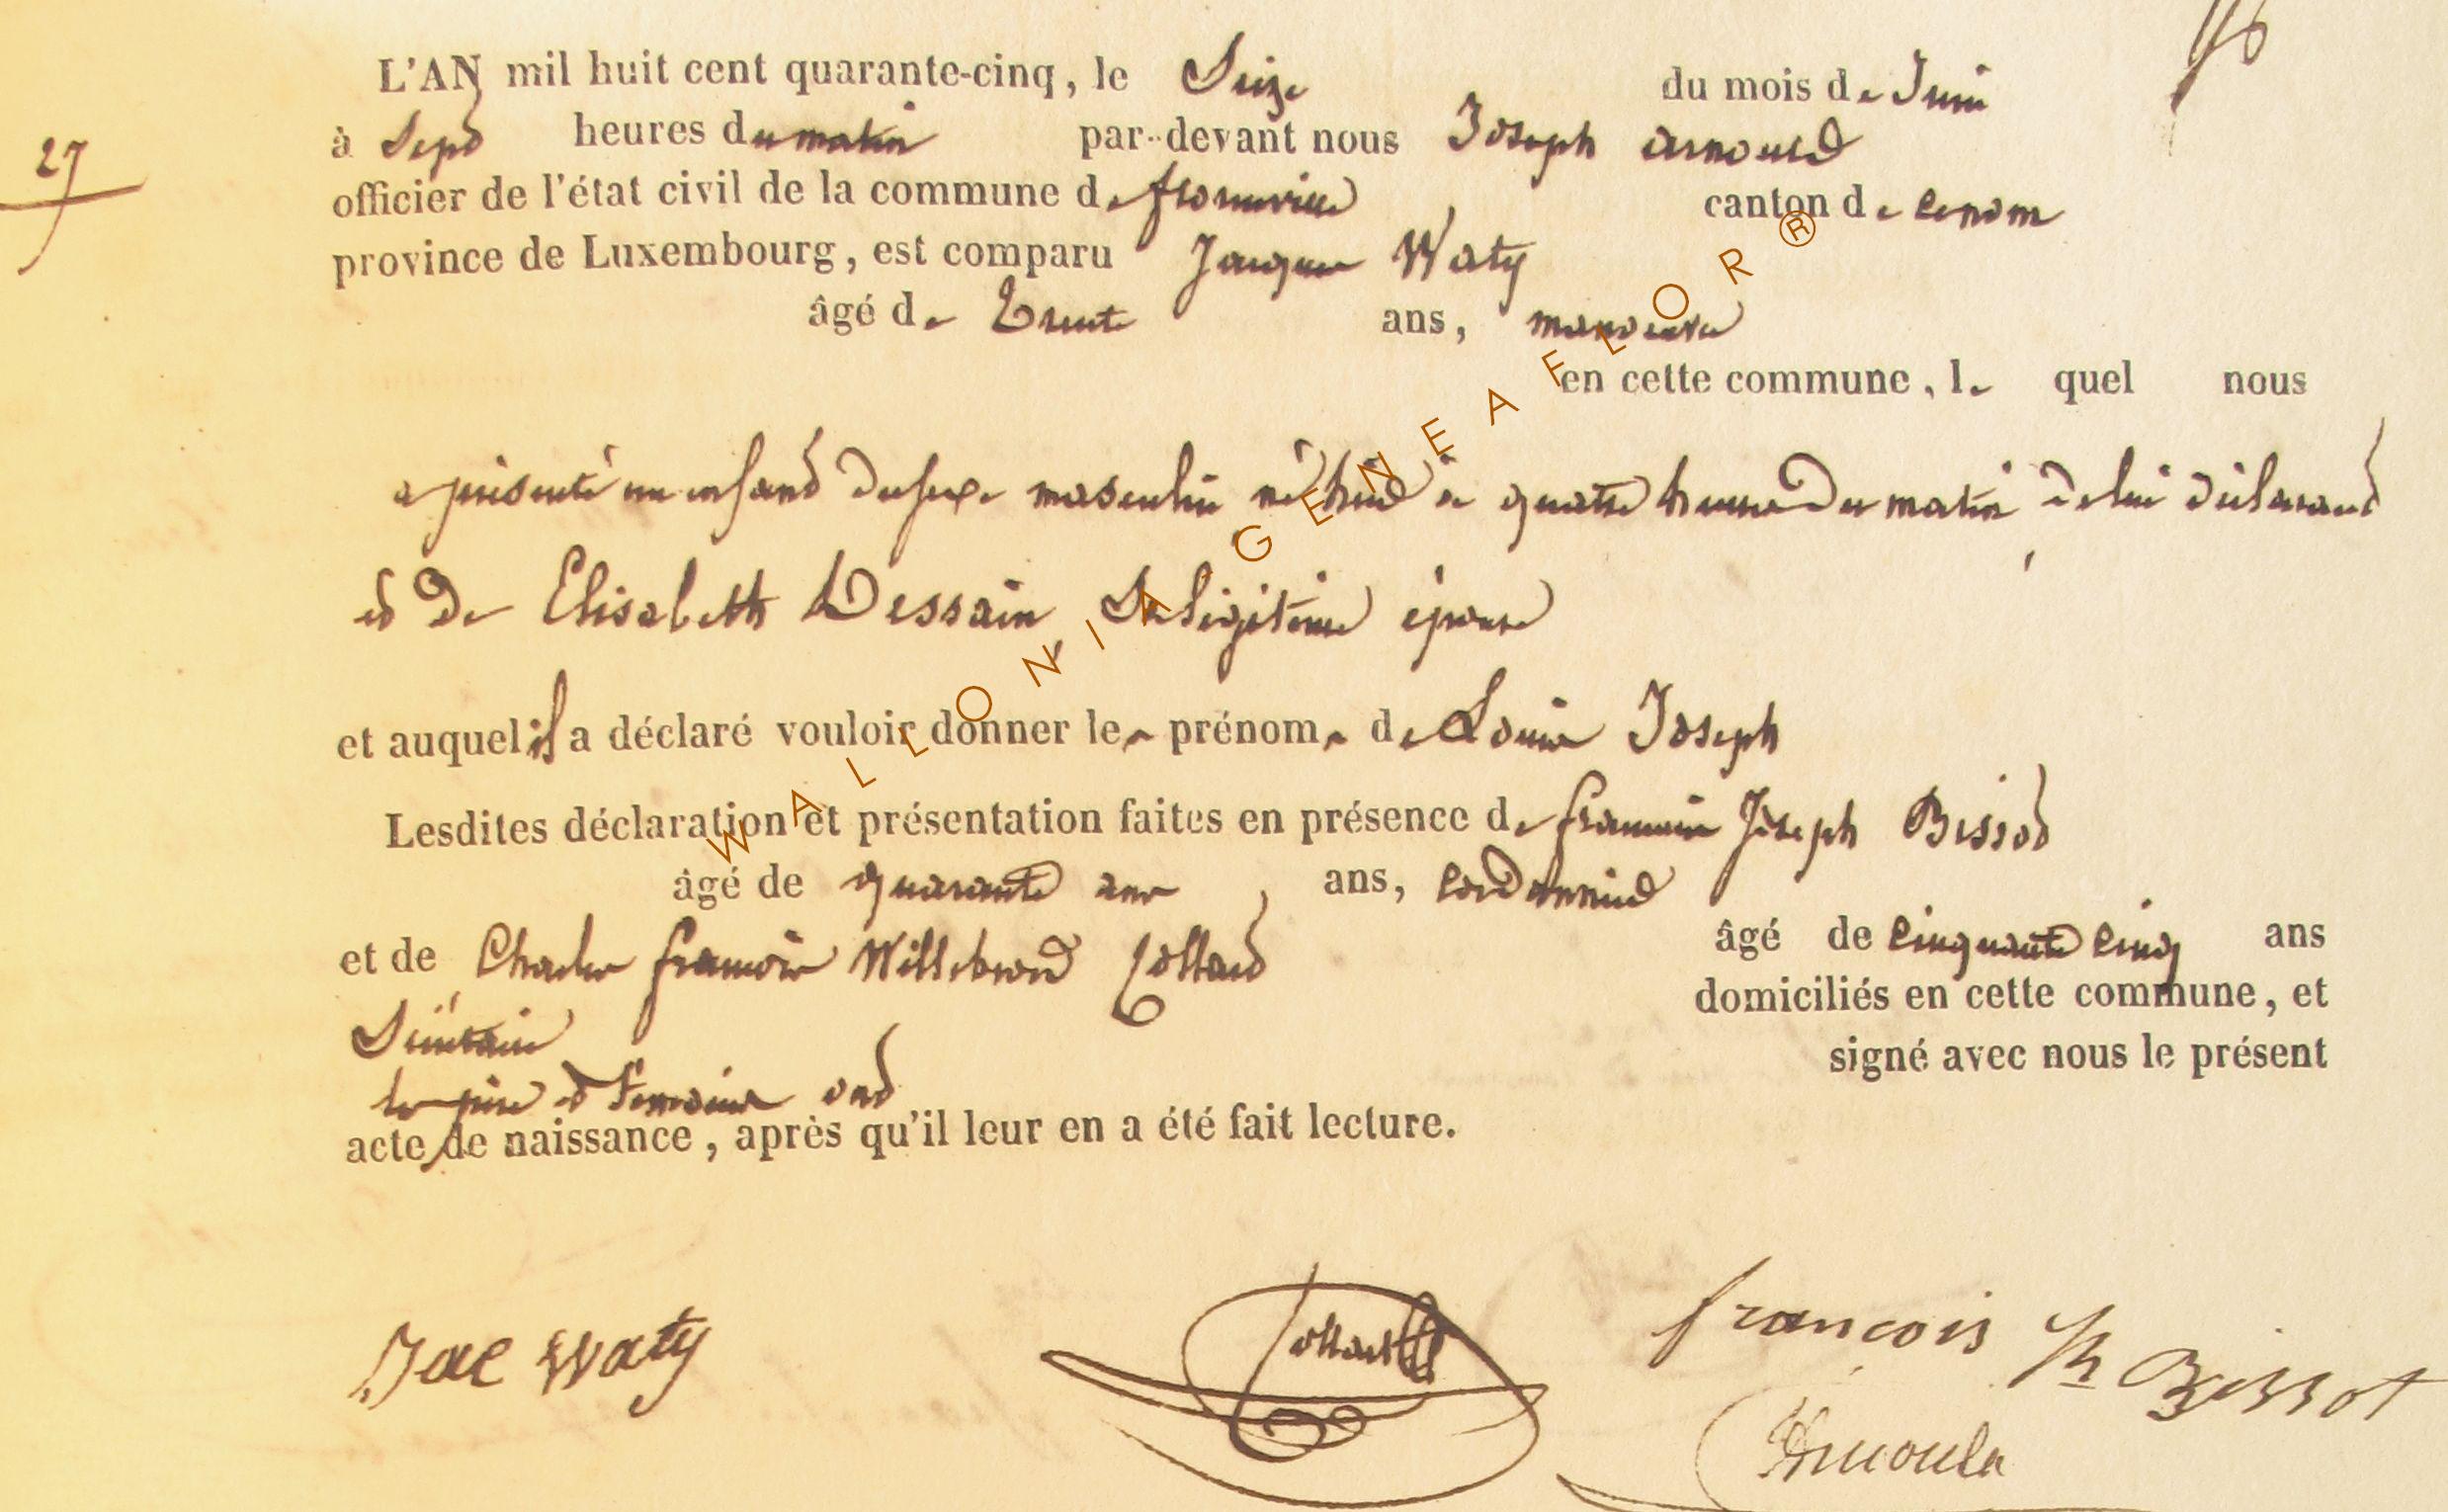 L'AN mil huit cent quarante-cinq, le Seize du mois de Juin
27
à Sept heures du matin par-devant nous Joseph arnould
officier de l'état civil de la commune de florenville canton de
province de Luxembourg, est comparu Jacques Waty
âgé de Trente ans, manoeuvre
en cette commune, le quel nous
a présenté un enfant du sexe masculin né à quatre heures du matin de lui déclarant
et de Elisabeth Dessain Sa légitime épouse
et auquel il a déclaré vouloir donner les prénoms de Louis Joseph
Lesdites déclaration et présentation faites en présence de françois Joseph Bissot
âgé de quarante ans ans, cordonnier
et de Charles françois Willebrord Collard âgé de cinquante cinq ans
domiciliés en cette commune, et
Secrétaire
signé avec nous le présent
les père et temoins ont
acte de naissance, après qu'il leur en a été fait lecture.
Jac Waty
Collard
françois Jh Bissot
WALLONIA GENEAFLOR®